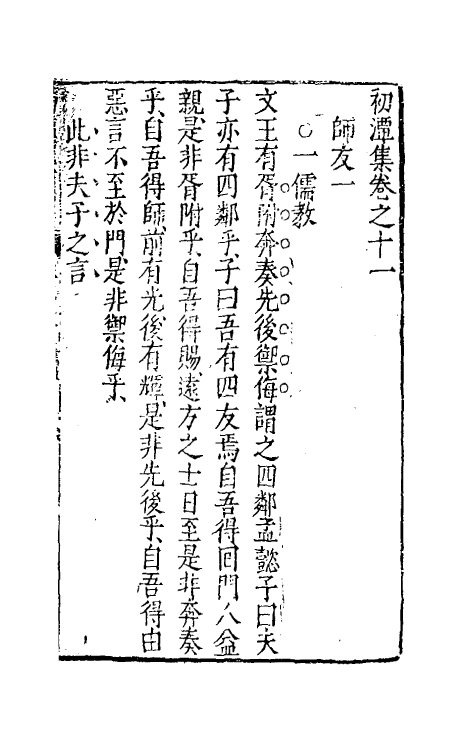 初潭集卷之十一
師友一
○一儒教
文王有胥附奔奏先後禦侮謂之四鄰孟懿子曰夫
子亦有四鄰乎子曰吾有四友焉自吾得回門人益
親是非胥附乎自吾得賜遠方之士日至是非奔奏
乎自吾得師前有光後有輝是非先後乎自吾得由
惡言不至於門是非禦侮乎
此非夫子之言